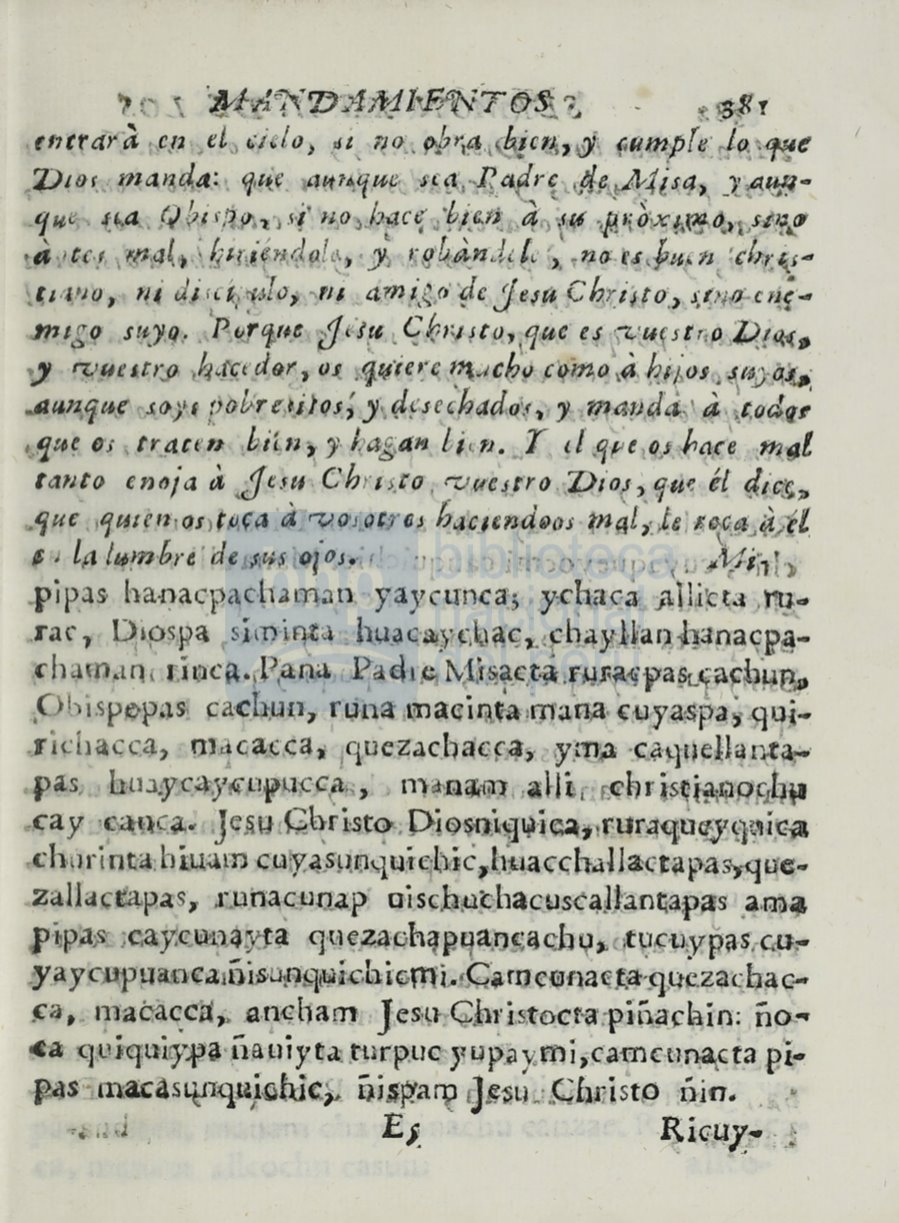 MANDAMIENTOS. 381
entrarà en el cielo, si no obra bien, y cumple lo que
Dios manda: que aunque sea Padre de Misa, y aun-
que sea Obispo, si no hace bien à su pròximo, sino
à tes mal, hiriéndole, y robàndole, no es buen chris-
tiano, ni discipulo, ni amigo de Jesu Christo, sino ene-
migo suyo. Porque Jesu Christo, que es vuestro Dios,
y vuestro hacedor, os quiere mucho como à hijos suyos,
aunque soys pobrecitos, y desechados, y manda à todos
que os traten bien, y hagan bien. Y el que os hace mal
tanto enoja à Jesu Christo vuestro Dios, que él dice,
que quien os toca à vosotros haciendoos mal, le toca à él
e. la lumbre de sus ojos.
pipas hanacpachaman yaycunca; ychaca allicta ru-
rac, Diospa siminta huacaychac, chayllan hanacpa-
chaman rinca. Pana Padre Misactaruracpas cachun,
Obispopas cachun, runa macinta mana cuyaspa, qui-
richacca, macacca, quezachacca, yma caquellanta-
pas huaycaycupucca, manam alli christianochu
cay canca. Jesu Christo Diosniquica, ruraqueyquica
churinta hiuam cuyasunquichic, huacchallactapas, que-
zallactapas, runacunap uischuchacuscallantapas ama
pipas caycunayta quezachapuancachu, tucuypas cu-
yaycupuanca ñisunquichicmi. Camcunacta quezachac-
ca, macacca, ancham Jesu Christocta piñachin: ño-
ca quiquiypa ñauiyta turpuc yupaymi, camcunacta pi-
pas macasunquichic, ñispam Jesu Christo ñin.
Es Ricuy-
biblioteca